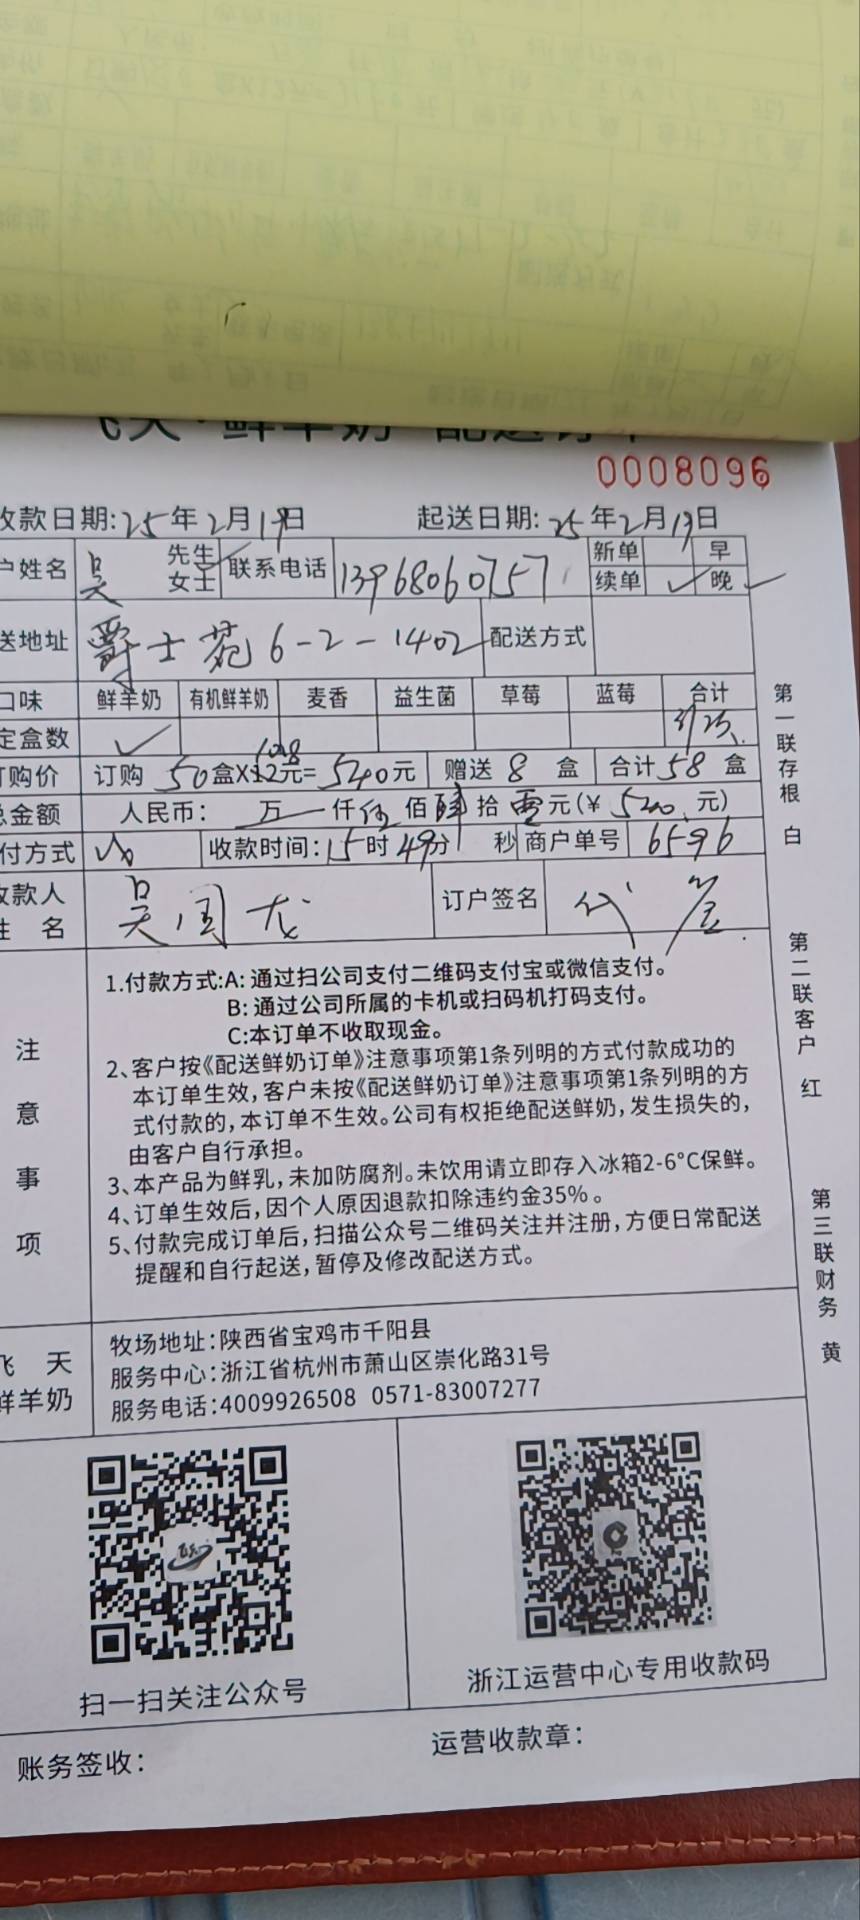 飞天·鲜羊奶 配送订单
0008096
收款日期:25年2月19日 起送日期:25年2月19日
户姓名 吴 先生 女士 联系电话 13968060757 新单 续单 ✓ 早 晚 ✓
送地址 爵士苑6-2-1402 配送方式
口味 鲜羊奶 有机鲜羊奶 麦香 益生菌 草莓 蓝莓 合计
定盒数 ✓
订购价 订购 50 盒X12元= 540元 10.8 赠送 8 盒 合计 58 盒
总金额 人民币: 万 仟 伍 佰 肆 拾 零 元(¥ 540 元)
付方式 收款时间:15时49分 秒 商户单号 6596
收款人
姓 名 吴国龙 订户签名 代签
注意事项
1.付款方式:A:通过扫公司支付二维码支付宝或微信支付。
B:通过公司所属的卡机或扫码机打码支付。
C:本订单不收取现金。
2、客户按《配送鲜奶订单》注意事项第1条列明的方式付款成功的
本订单生效,客户未按《配送鲜奶订单》注意事项第1条列明的方
式付款的,本订单不生效。公司有权拒绝配送鲜奶,发生损失的,
由客户自行承担。
3、本产品为鲜乳,未加防腐剂。未饮用请立即存入冰箱2-6°C保鲜。
4、订单生效后,因个人原因退款扣除违约金35%。
5、付款完成订单后,扫描公众号二维码关注并注册,方便日常配送
提醒和自行起送,暂停及修改配送方式。
飞 天
鲜羊奶
牧场地址:陕西省宝鸡市千阳县
服务中心:浙江省杭州市萧山区崇化路31号
服务电话:4009926508 0571-83007277
扫一扫关注公众号
浙江运营中心专用收款码
账务签收:
运营收款章:
第一联存根 白
第二联客户 红
第三联财务 黄